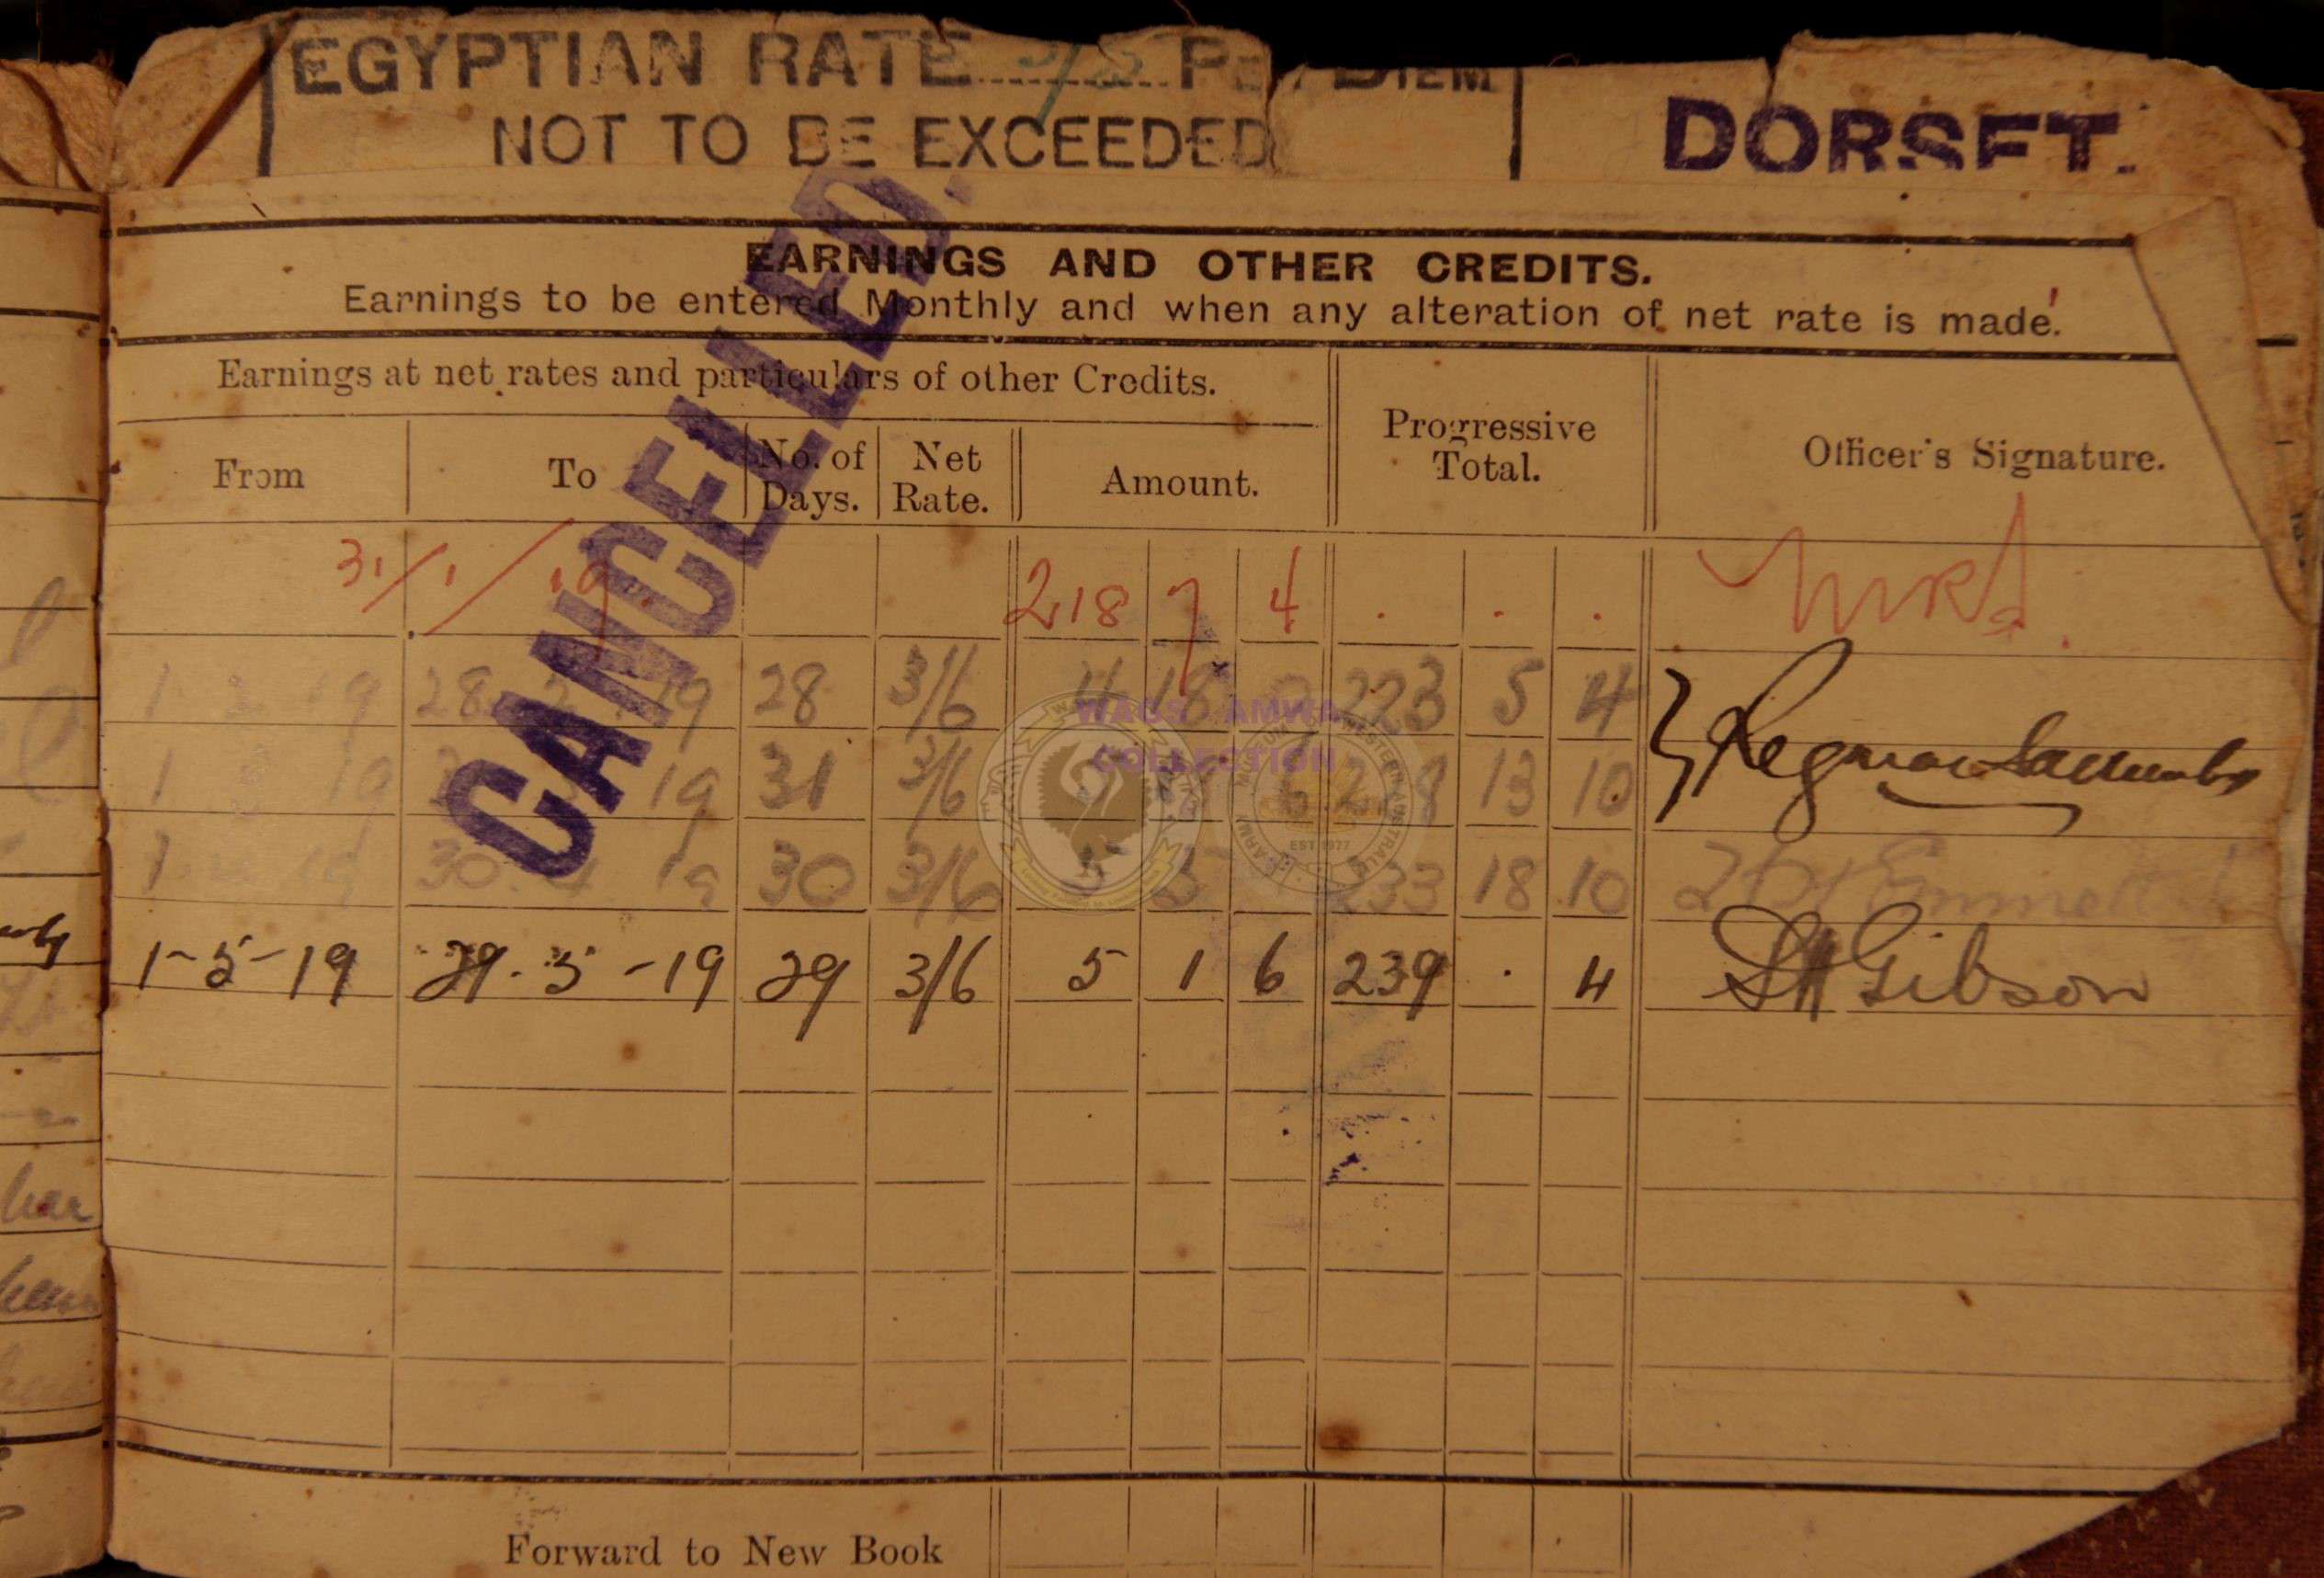 EGYPTIAN RATE 3/5 PER DIEM
NOT TO BE EXCEEDED
DORSET.
CANCELLED.
EARNINGS AND OTHER CREDITS.
Earnings to be entered Monthly and when any alteration of net rate is made.
Earnings at net rates and particulars of other Credits. Progressive Total. Officer's Signature.
From To No. of Days. Net Rate. Amount.
31/1/19 218 7 4 . . .
1 2 19 28 2 19 28 3/6 4 18 0 223 5 4
1 19 19 31 3/6 5 8 6 228 13 10
1 19 30 4 19 30 3/6 5 5 233 18 10 Emmett
1-5-19 29.5-19 29 3/6 5 1 6 239 . 4 Gibson
WAGS AMWA
COLLECTION
EST 1977
Forward to New Book